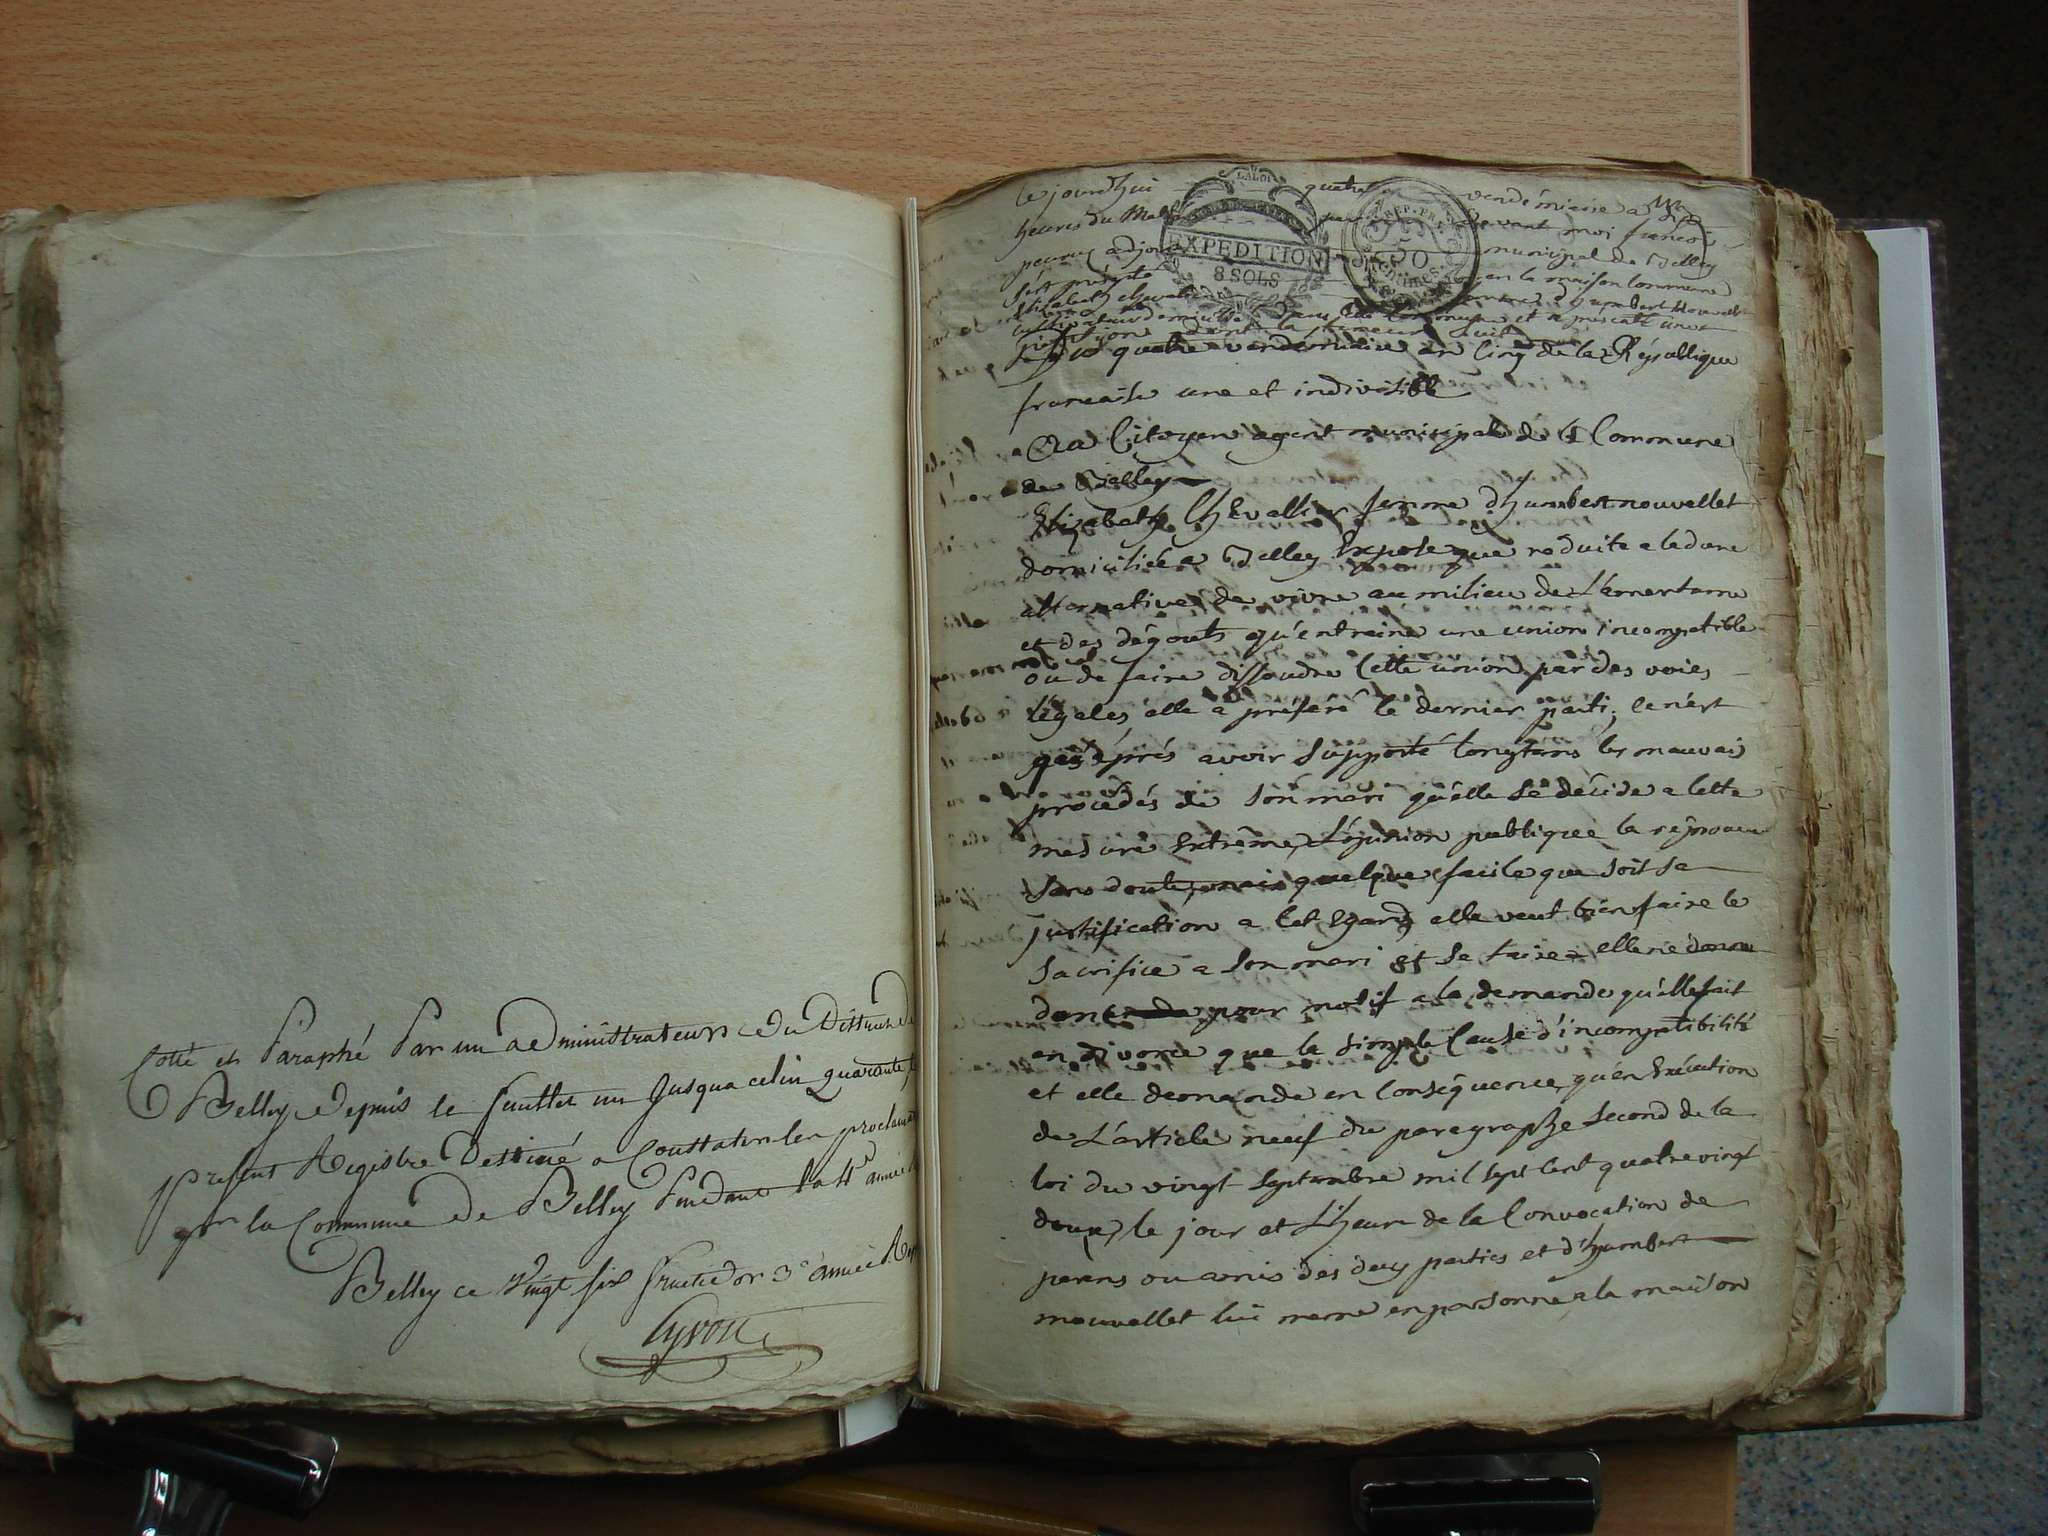 Cotté et Paraphé Par un administrateur du District de
Belley depuis le feuillet un Jusqua celui quarante
present Registre Destiné a Constater les proclama
par la Commune de Belley Pendant la 4e année
Belley ce Vingt six fructidor 3e année Rep
Cyvoct
LA LOI
EXPEDITION
8 SOLS
REP. FRA.
50
CENTIMES
ce jourdhui quatre vendémiaire a dix
heures du Matin par devant moi francois
adjoint municipal de Belley
s'est présenté en la maison commune
Elizabeth chevallier femme a humbert Nouvellet
cultivateur domicilié dans cette Commune et a présenté une
petition dont la teneur suit
Du quatre vendemiaire an Cinq de la République
francaise une et indivisible
Au Citoyen agent municipal de la Commune
de Belley
Elizabeth Chevallier femme d'humbert nouvellet
domiciliée a Belley Expose que reduite a la dure
alternative de vivre au milieu de L'amertume
et des dégouts qu'entraine une union incompatible
ou de faire dissoudre Cette union par des voies
légales elle a préferé le dernier parti; ce n'est
qu'après avoir supporté longtems les mauvais
procédés de son mari qu'elle se décide a Cette
mesure Extrême, L'opinion publique la réprouve
sans doute, mais quelque facile que soit sa
justification a Cet Egard elle veut bien faire le
sacrifice a son mari et se taire elle ne donne
donc pour motif a la demande qu'elle fait
en divorce que la simple Cause d'incompatibilité
et elle demande en Conséquence, qu'en Exécution
de L'article neuf du paragraphe second de la
loi du vingt septembre mil sept Cent quatre vingt
douze, le jour et L'heure de la Convocation de
parens ou amis des deux parties et d'humbert
nouvellet lui meme en personne a la maison